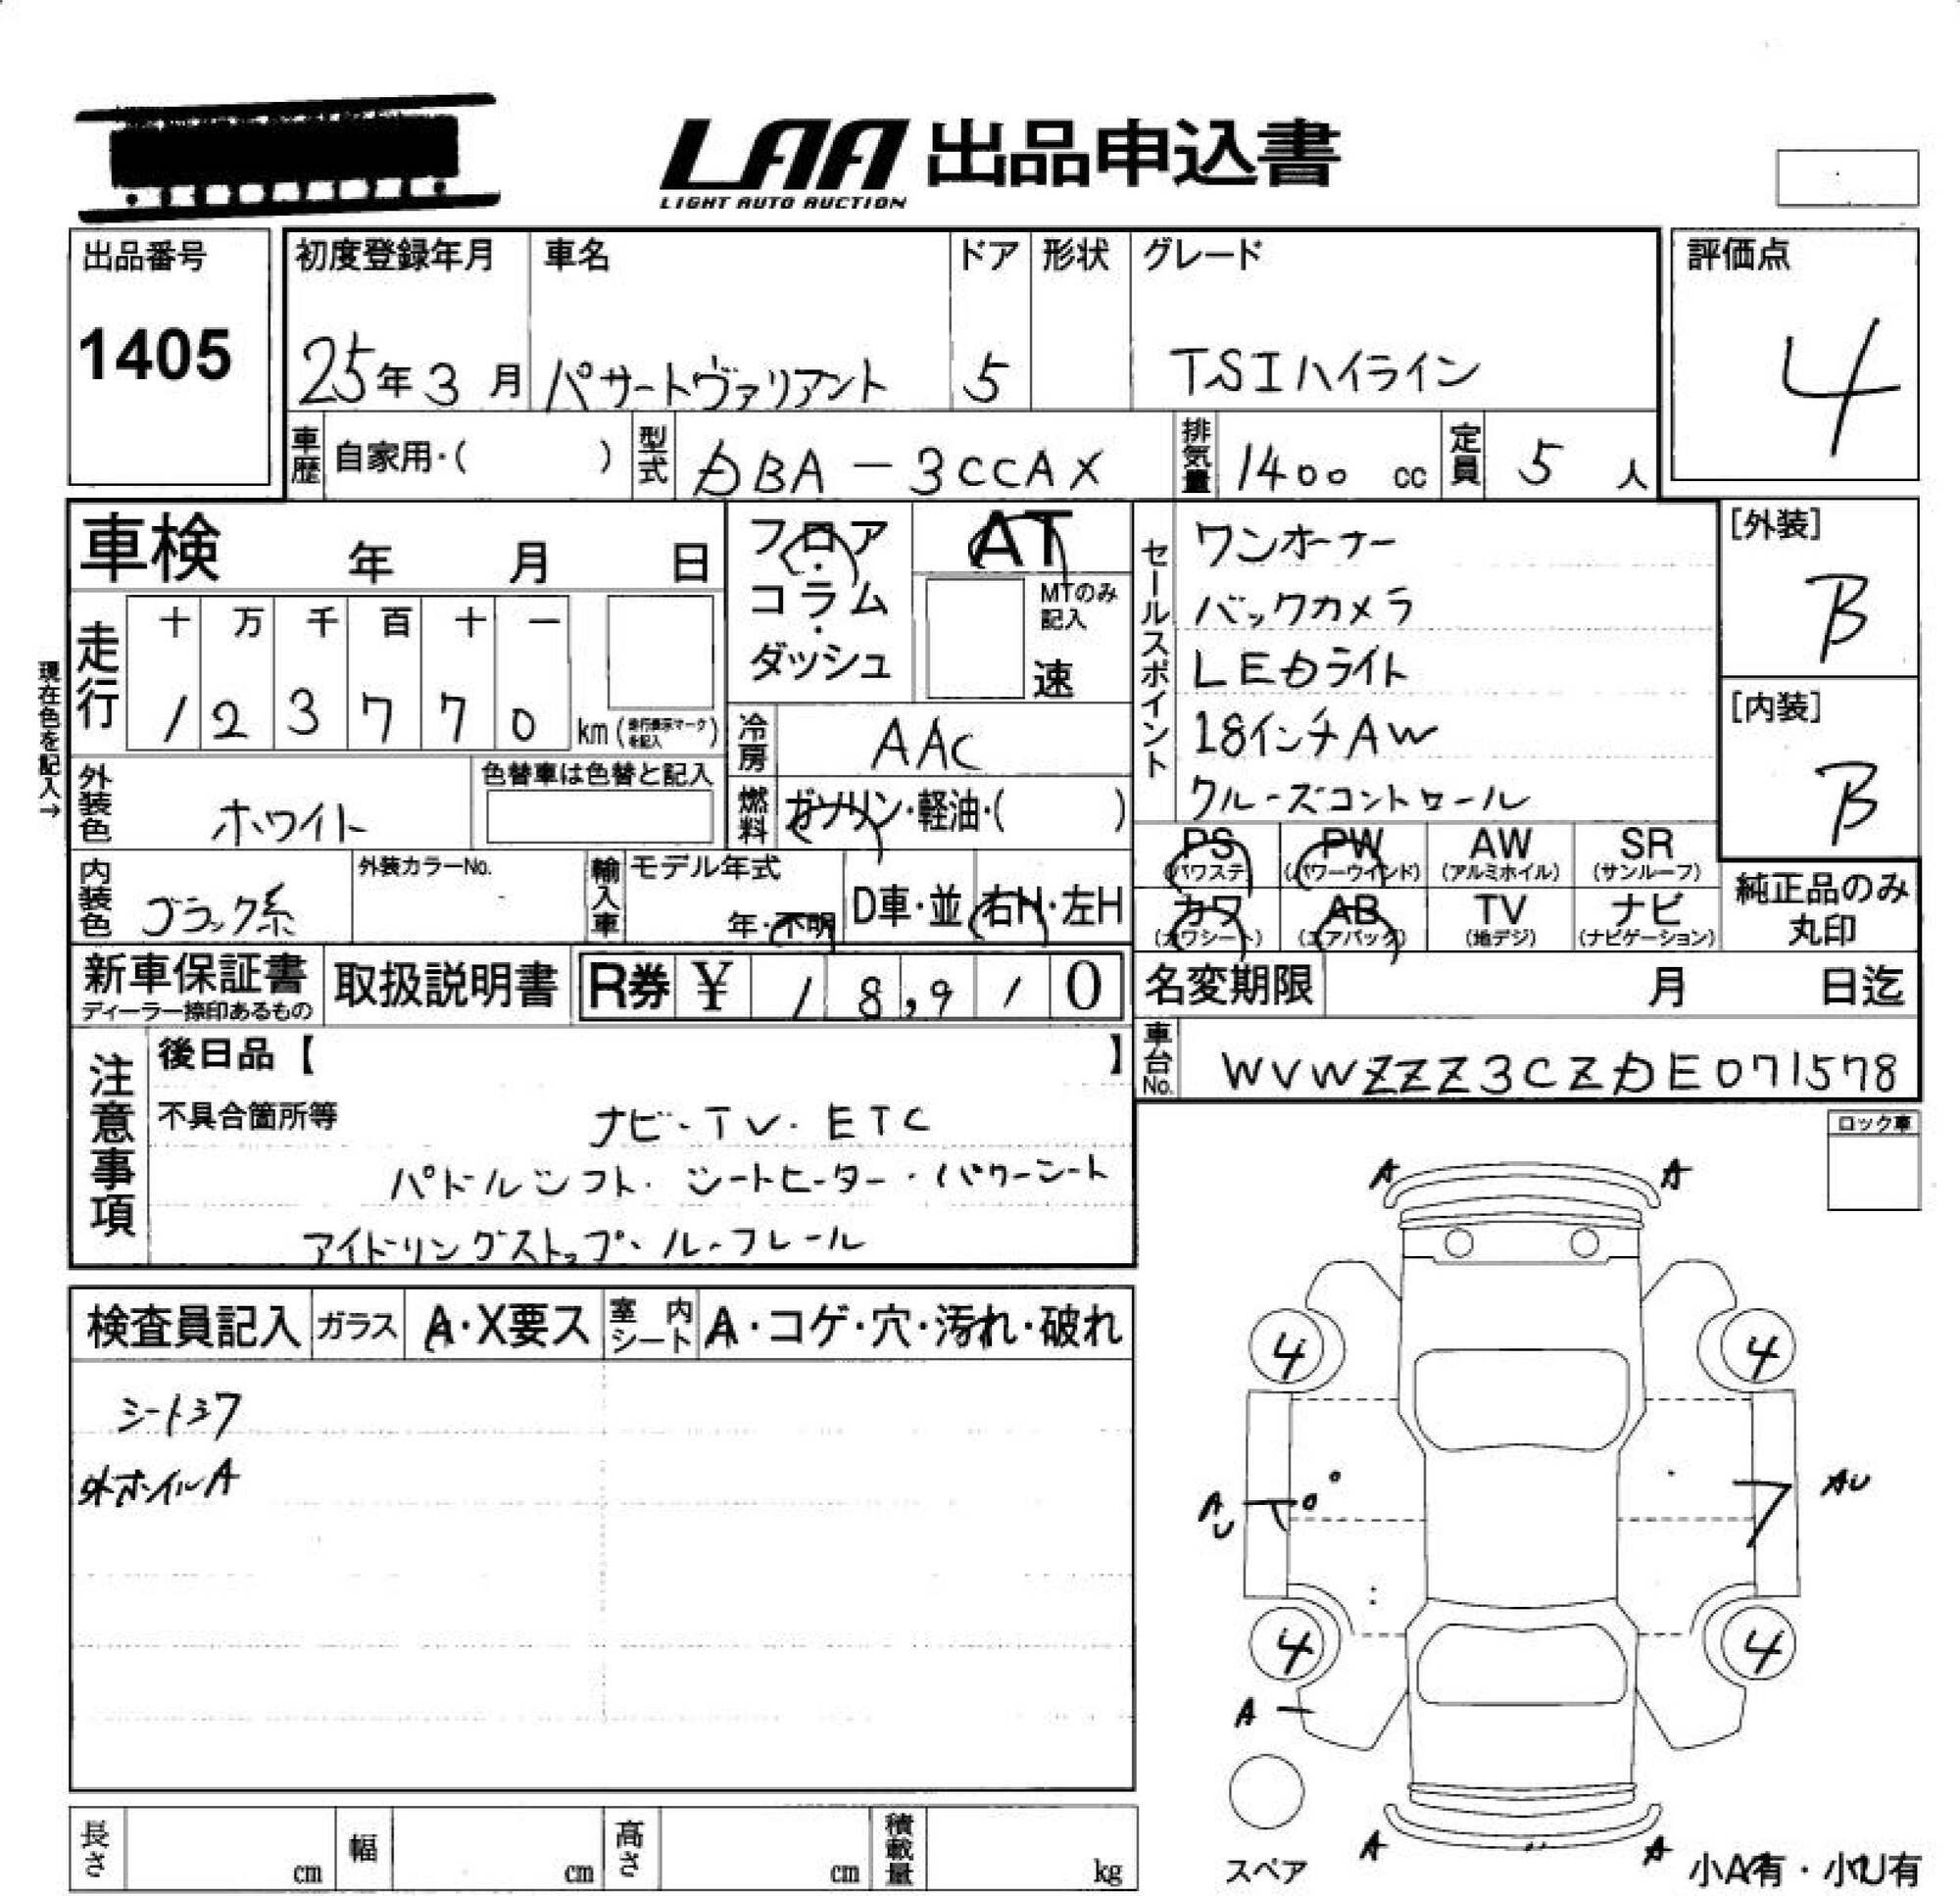 LAA 出品申込書
LIGHT AUTO AUCTION
出品番号
1405
初度登録年月
25年3月
車名
パサートヴァリアント
ドア
5
形状
グレード
TSIハイライン
評価点
4
車歴 自家用・( )
型式 DBA-3CCAX
排気量 1400 cc
定員 5 人
車検 年 月 日
フロア・コラム・ダッシュ
AT
MTのみ記入
速
セールスポイント
ワンオーナー
バックカメラ
LEDライト
18インチAW
クルーズコントロール
[外装]
B
[内装]
B
現在色を記入→
走行
十 万 千 百 十 一
1 2 3 7 7 0 km (走行表示マークを記入)
冷房 AAC
燃料 ガソリン・軽油・( )
外装色 ホワイト
色替車は色替と記入
内装色 ブラック系
外装カラーNo.
輸入車
モデル年式
年・不明
D車・並
右H・左H
PS (パワステ)
PW (パワーウインド)
AW (アルミホイル)
SR (サンルーフ)
カワ (カワシート)
AB (エアバック)
TV (地デジ)
ナビ (ナビゲーション)
純正品のみ丸印
新車保証書
ディーラー捺印あるもの
取扱説明書
R券 ¥ 18,910
名変期限 月 日迄
車台No. WVWZZZ3CZDE071578
注意事項
後日品【 】
不具合箇所等
ナビ・TV・ETC
パドルシフト・シートヒーター・パワーシート
アイドリングストップ・ルーフレール
ロック車
検査員記入
ガラス A・X要ス
室内シート A・コゲ・穴・汚れ・破れ
シートシワ
外ホイルA
A A
4 4
AU AU
4 4
A
A A
スペア
小A有・小U有
長さ cm
幅 cm
高さ cm
積載量 kg